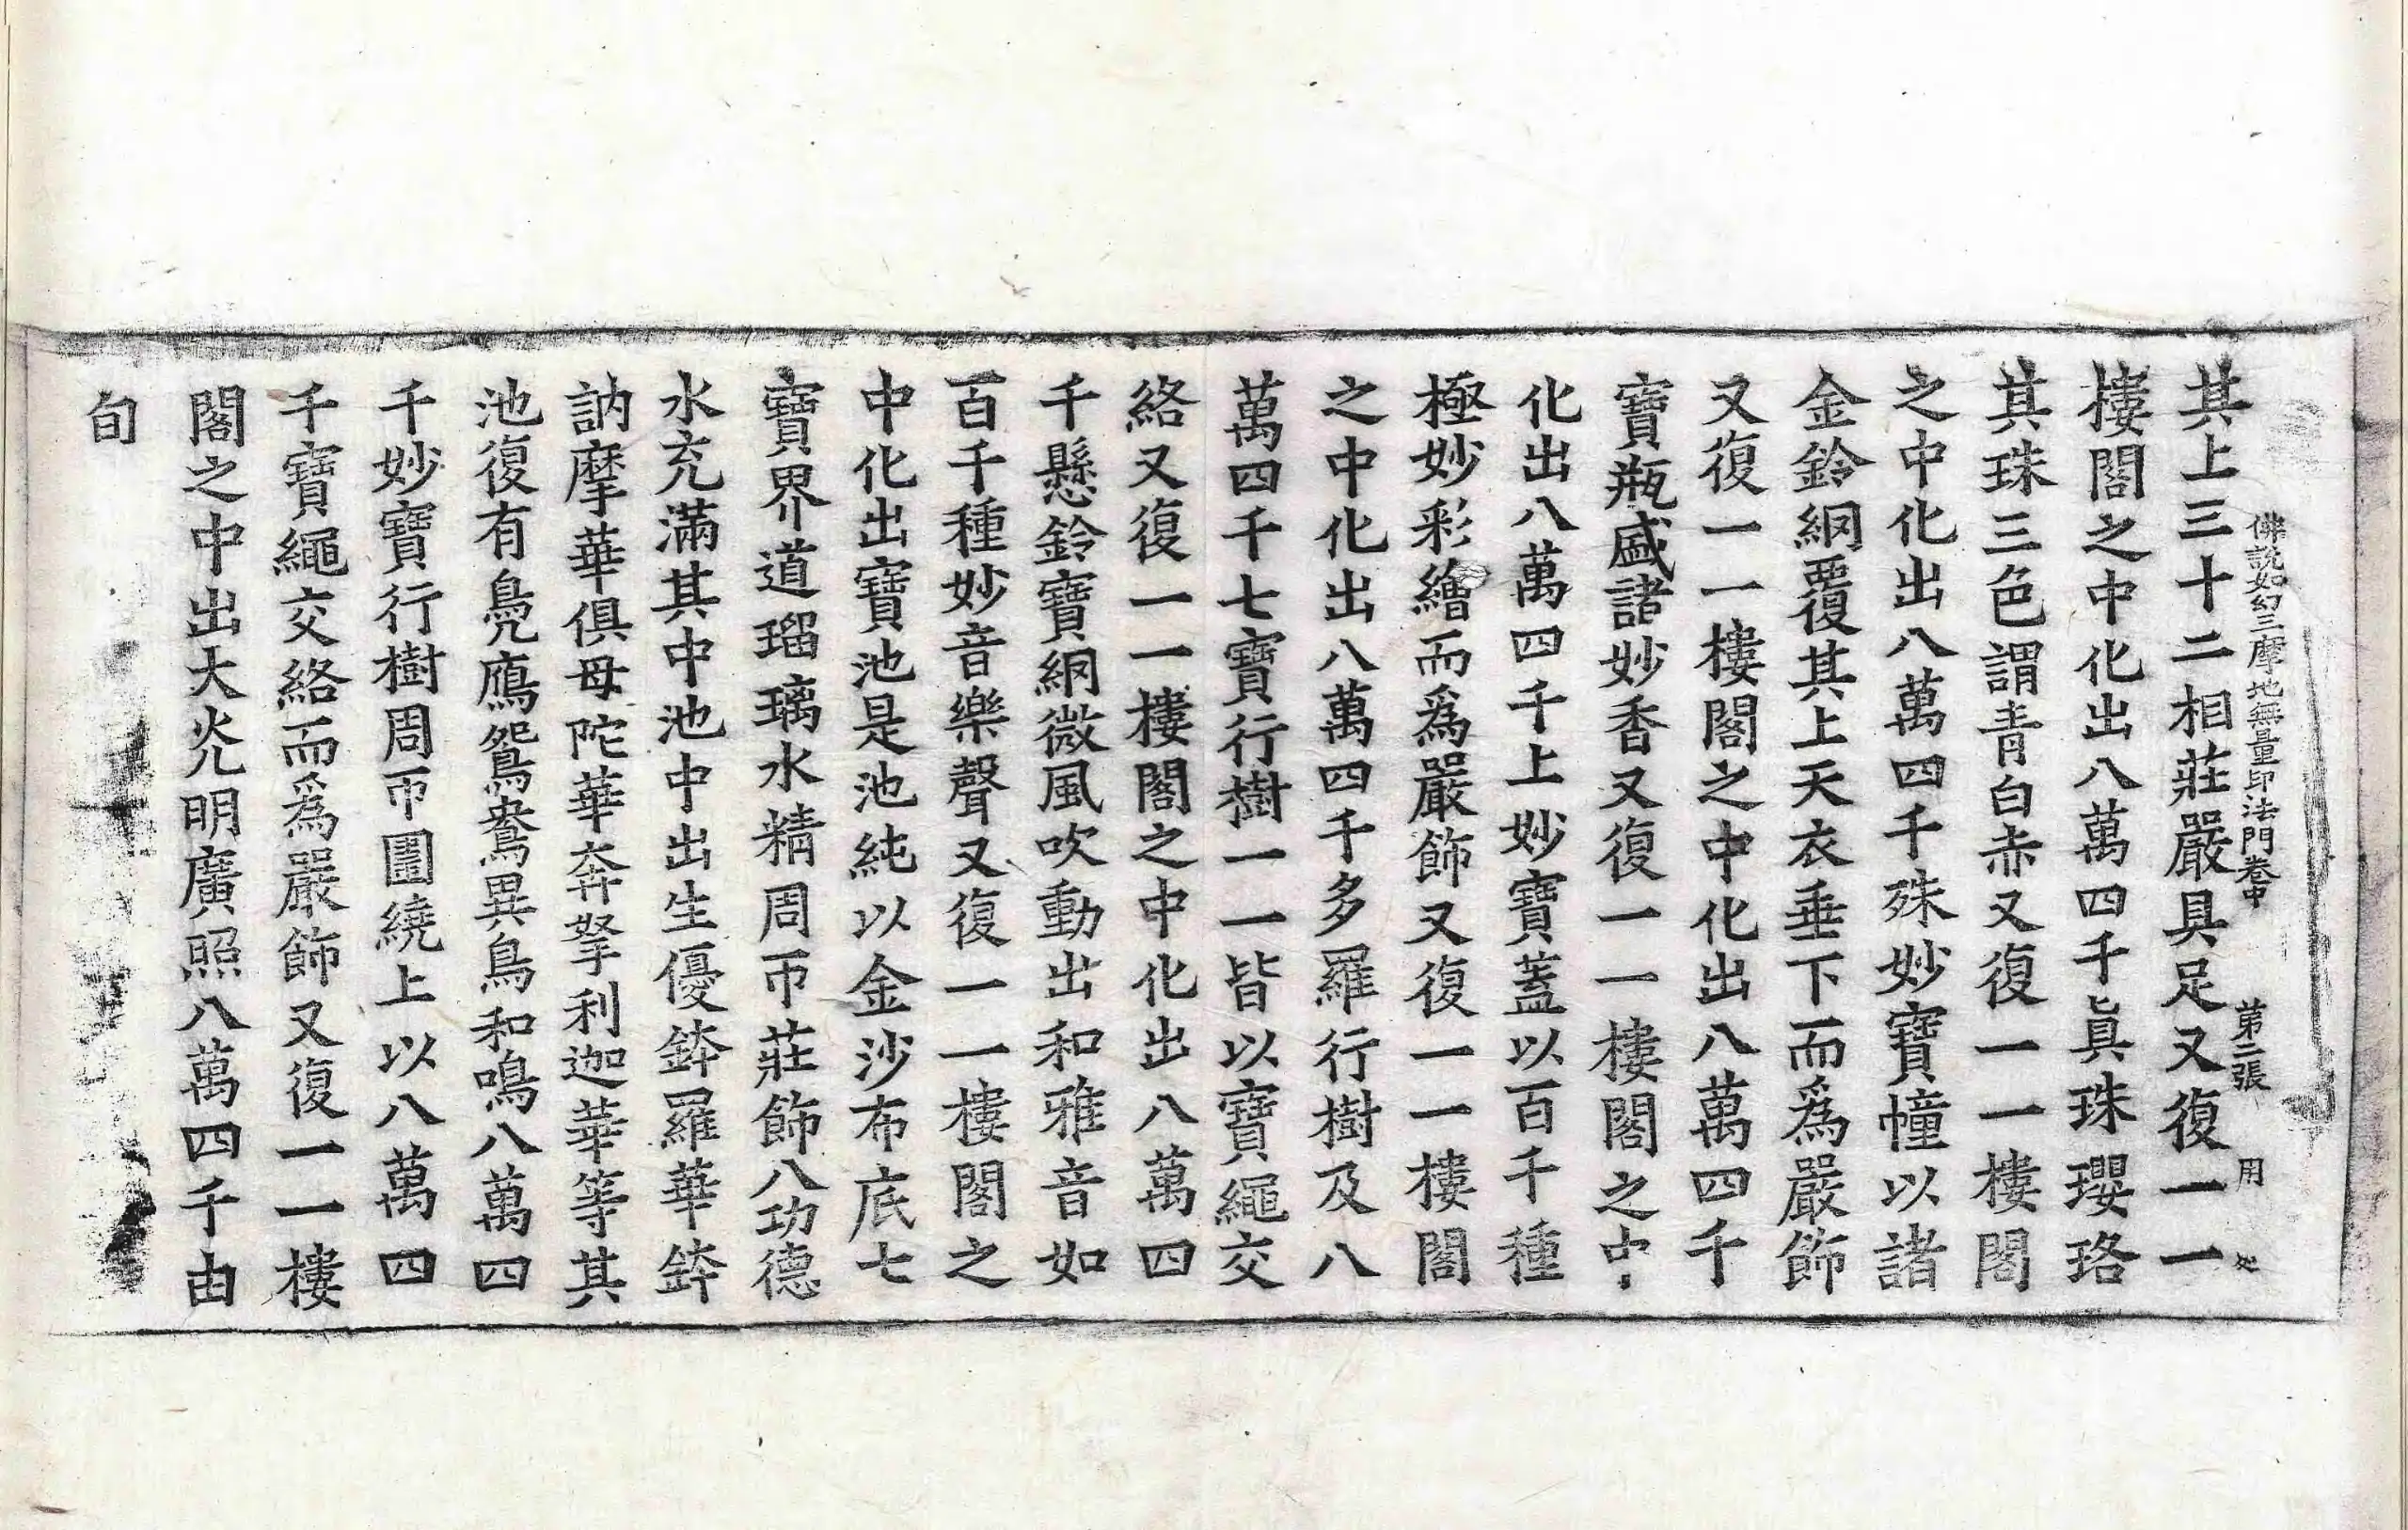 佛說如幻三摩地無量印法門卷中 第二張 用
其上三十二相莊嚴具足又復一一
樓閣之中化出八萬四千眞珠瓔珞
其珠三色謂青白赤又復一一樓閣
之中化出八萬四千殊妙寶幢以諸
金鈴網覆其上天衣垂下而爲嚴飾
又復一一樓閣之中化出八萬四千
寶瓶盛諸妙香又復一一樓閣之中
化出八萬四千上妙寶蓋以百千種
極妙彩繪而爲嚴飾又復一一樓閣
之中化出八萬四千多羅行樹及八
萬四千七寶行樹一一皆以寶繩交
絡又復一一樓閣之中化出八萬四
千懸鈴寶網微風吹動出和雅音如
百千種妙音樂聲又復一一樓閣之
中化出寶池是池純以金沙布底七
寶界道瑠璃水精周帀莊飾八功德
水充滿其中池中出生優鉢羅華鉢
訥摩華俱母陀華奔拏利迦華等其
池復有鳧鴈鴛鴦異鳥和鳴八萬四
千妙寶行樹周帀圍繞上以八萬四
千寶繩交絡而爲嚴飾又復一一樓
閣之中出大光明廣照八萬四千由
旬